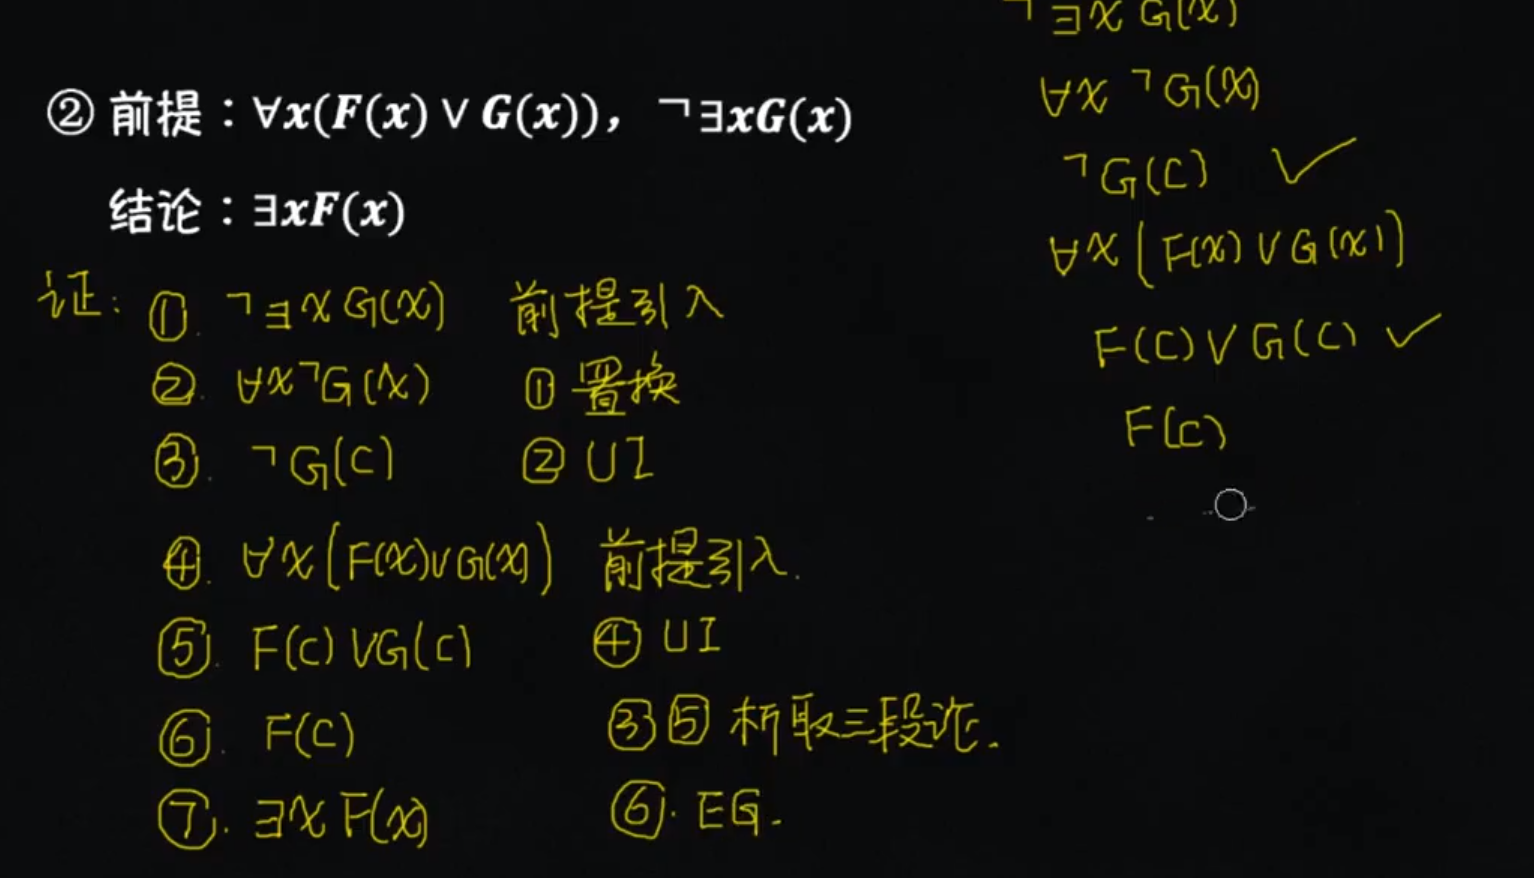 ② 前提：∀x(F(x) ∨ G(x))， ¬∃xG(x)
结论：∃xF(x)
证：①. ¬∃x G(x) 前提引入
②. ∀x¬G(x) ① 置换
③. ¬G(C) ② UI
④. ∀x(F(x)∨G(x)) 前提引入.
⑤. F(C)∨G(C) ④ UI
⑥. F(C) ③⑤ 析取三段论.
⑦. ∃x F(x) ⑥. EG.
¬∃x G(x)
∀x ¬G(x)
¬G(C) ✓
∀x(F(x)∨G(x))
F(C)∨G(C) ✓
F(C)